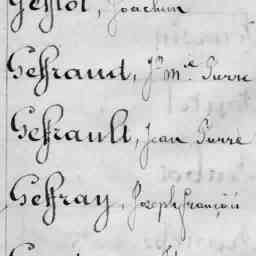 Gefflot, Joachim
Geffraud, Jn Mie Pierre
Geffrault, Jean Pierre
Geffray, Joseph François